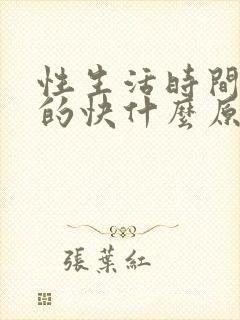 性生活時間
的快什麼原
張葉紅